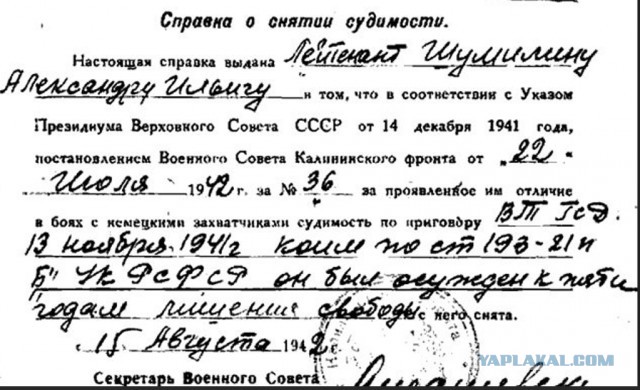 Справка о снятии судимости.
Настоящая справка выдана Лейтенант Шумилину
Александру Ильичу в том, что в соответствии с Указом
Президиума Верховного Совета СССР от 14 декабря 1941 года,
постановлением Военного Совета Калининского фронта от „22“
Июля 1942 г. за № 36 за проявленное им отличие
в боях с немецкими захватчиками судимость по приговору ВТ
13 ноября 1941 г коим по ст 193-21 п
Б" УК РСФСР он был осужден к пяти
годам лишения свободы с него снята.
15 Августа 1942
YAPLAKAL.COM
Секретарь Военного Совета